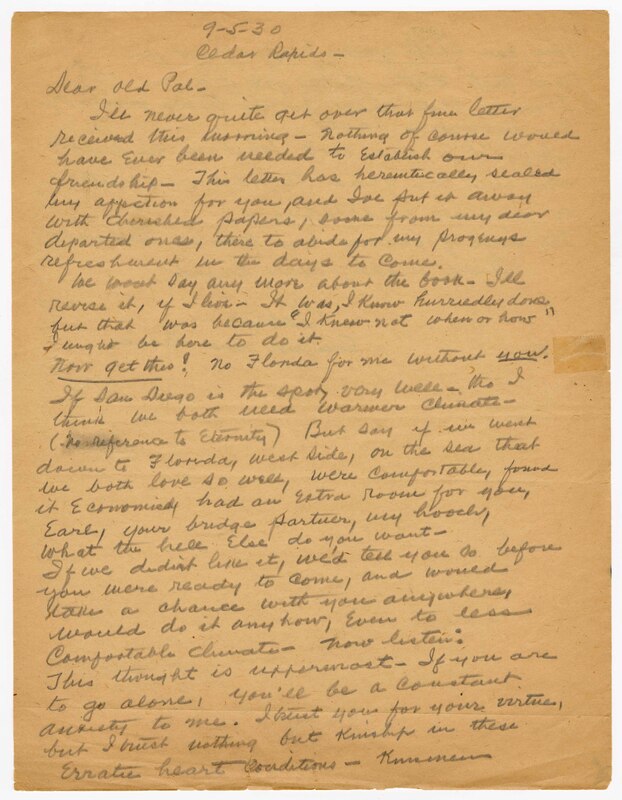 9-5-30
Cedar Rapids -
Dear Old Pal -
I'll never quite get over that fine letter
received this morning - Nothing of course would
have Ever been needed to Establish our
friendship - This letter has hermetically sealed
my affection for you, and I've put it away
with cherished papers, some from my dear
departed ones, there to abide for my progenys
refreshment in the days to come.
We wont say any more about the book - I'll
revise it, if I live - It was, I know hurriedly done
but that was because "I knew not when or how"
I might be here to do it.
Now get this! No Florida for me without you.
If San Diego is the spot, very well - tho I
think we both need warmer climate -
(no reference to Eternity) But say if we went
down to Florida, west side, on the sea that
we both love so well, were comfortable, found
it Economical, had an Extra room for you,
Earl, your bridge partner, my hooch,
what the hell Else do you want -
If we didn't like it, we'd tell you so before
you were ready to come, and would
take a chance with you anywhere,
would do it anyhow, Even to less
Comfortable climate - Now listen:
This thought is uppermost - If you are
to go alone, you'll be a constant
anxiety to me. I trust you for your virtue,
but I trust nothing but Kinship in these
Erratic heart conditions - Kinsmen